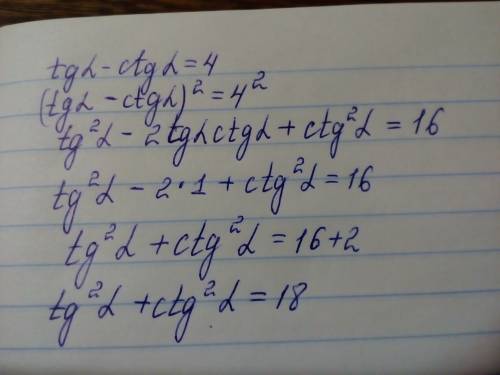 tgα - ctgα = 4
(tgα - ctgα)² = 4²
tg²α - 2tgα ctgα + ctg²α = 16
tg²α - 2·1 + ctg²α = 16
tg²α + ctg²α = 16+2
tg²α + ctg²α = 18